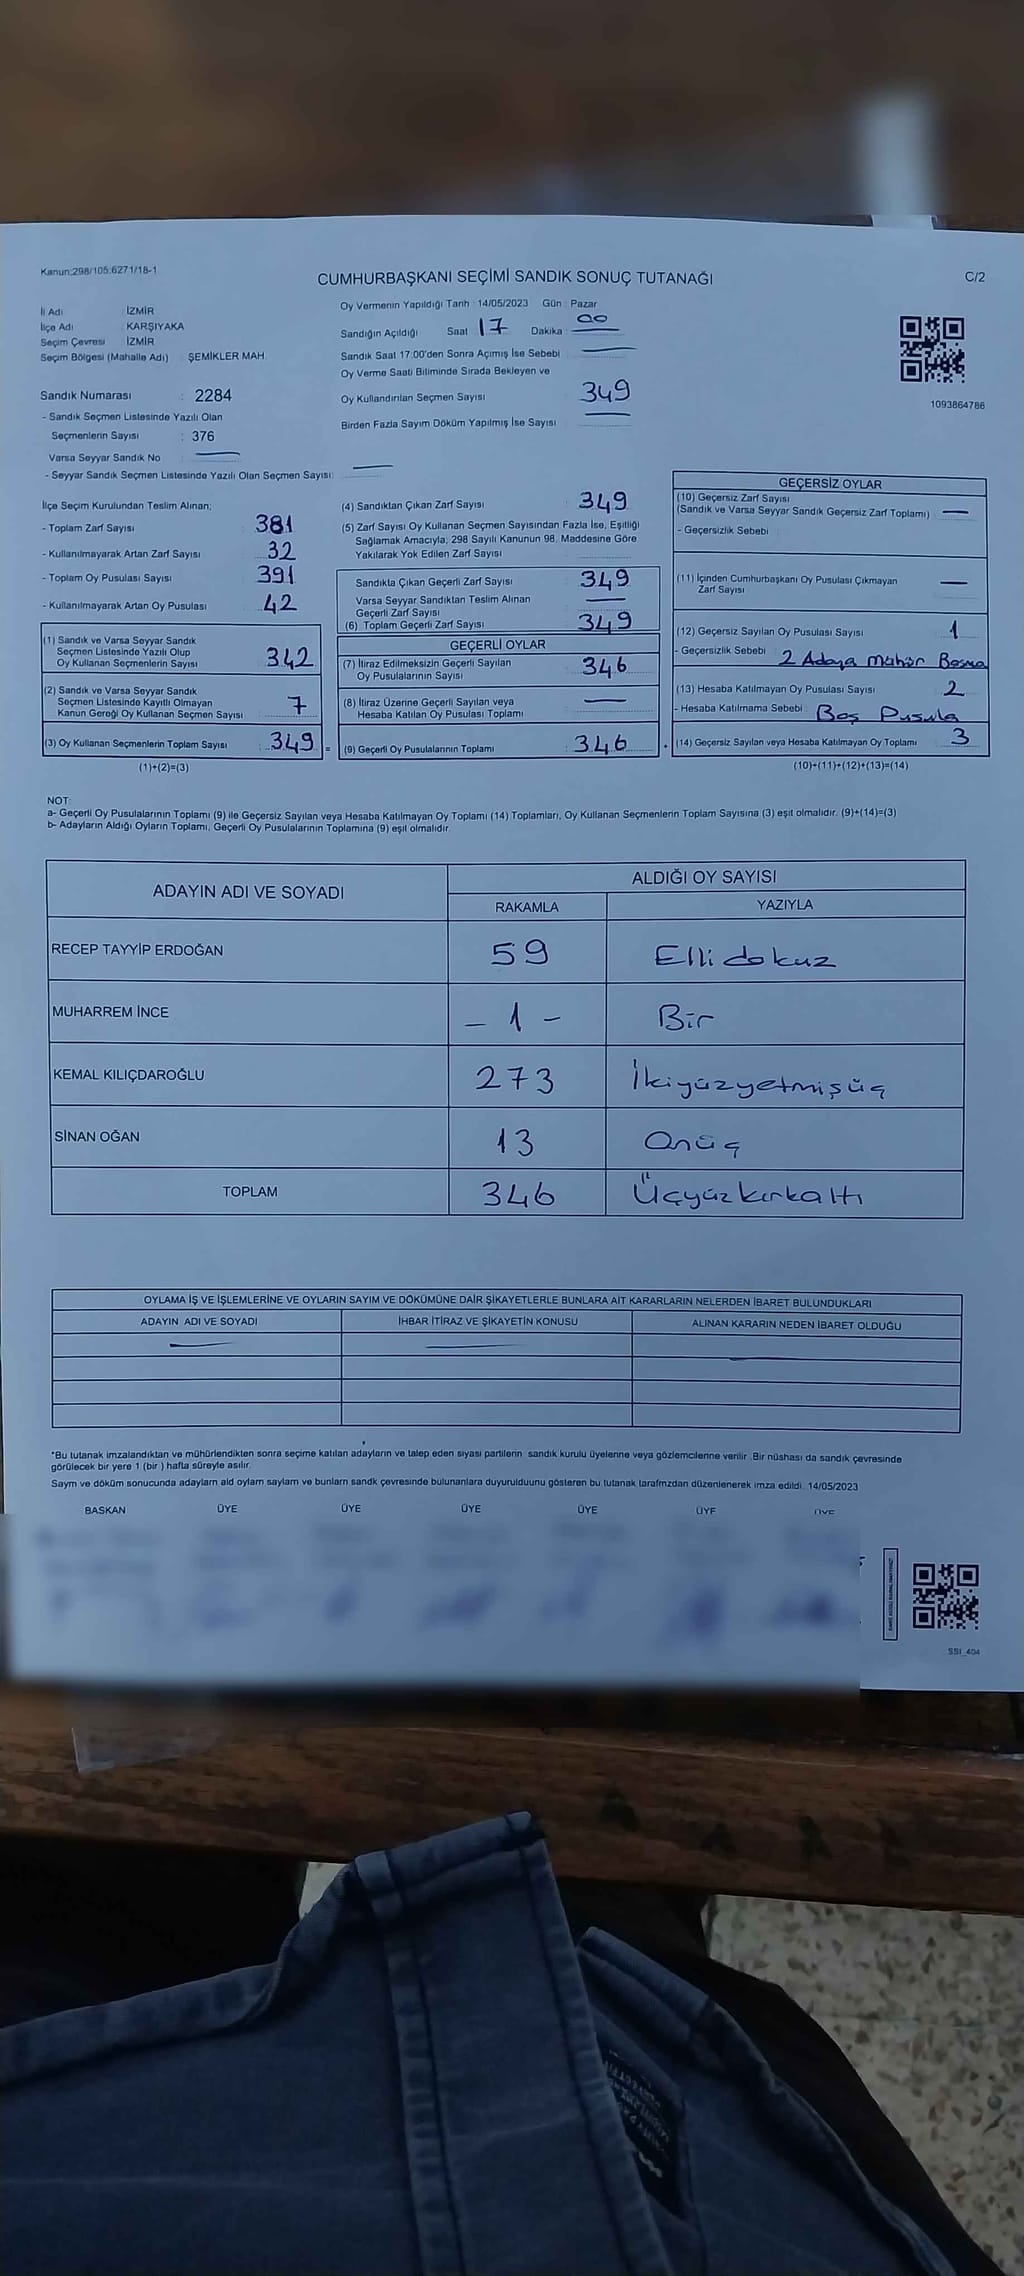 Kanun:298/105;6271/18-1
CUMHURBAŞKANI SEÇİMİ SANDIK SONUÇ TUTANAĞI
C/2
İl Adı : İZMİR
İlçe Adı : KARŞIYAKA
Seçim Çevresi : İZMİR
Seçim Bölgesi (Mahalle Adı) : ŞEMİKLER MAH.
Sandık Numarası : 2284
- Sandık Seçmen Listesinde Yazılı Olan
Seçmenlerin Sayısı : 376
Varsa Seyyar Sandık No :
- Seyyar Sandık Seçmen Listesinde Yazılı Olan Seçmen Sayısı:
Oy Vermenin Yapıldığı Tarih : 14/05/2023 Gün : Pazar
Sandığın Açıldığı Saat : 17 Dakika : 00
Sandık Saat 17.00'den Sonra Açımış İse Sebebi :
Oy Verme Saati Bitiminde Sırada Bekleyen ve
Oy Kullandırılan Seçmen Sayısı : 349
Birden Fazla Sayım Döküm Yapılmış İse Sayısı :
1093864786
İlçe Seçim Kurulundan Teslim Alınan;
- Toplam Zarf Sayısı : 381
- Kullanılmayarak Artan Zarf Sayısı : 32
- Toplam Oy Pusulası Sayısı : 391
- Kullanılmayarak Artan Oy Pusulası : 42
(1) Sandık ve Varsa Seyyar Sandık
Seçmen Listesinde Yazılı Olup
Oy Kullanan Seçmenlerin Sayısı : 342
(2) Sandık ve Varsa Seyyar Sandık
Seçmen Listesinde Kayıtlı Olmayan
Kanun Gereği Oy Kullanan Seçmen Sayısı : 7
(3) Oy Kullanan Seçmenlerin Toplam Sayısı : 349 =
(1)+(2)=(3)
(4) Sandıktan Çıkan Zarf Sayısı : 349
(5) Zarf Sayısı Oy Kullanan Seçmen Sayısından Fazla İse, Eşitliği
Sağlamak Amacıyla, 298 Sayılı Kanunun 98. Maddesine Göre
Yakılarak Yok Edilen Zarf Sayısı :
Sandıkta Çıkan Geçerli Zarf Sayısı : 349
Varsa Seyyar Sandıktan Teslim Alınan
Geçerli Zarf Sayısı :
(6) Toplam Geçerli Zarf Sayısı : 349
GEÇERLİ OYLAR
(7) İtiraz Edilmeksizin Geçerli Sayılan
Oy Pusulalarının Sayısı : 346
(8) İtiraz Üzerine Geçerli Sayılan veya
Hesaba Katılan Oy Pusulası Toplamı :
(9) Geçerli Oy Pusulalarının Toplamı : 346 +
GEÇERSİZ OYLAR
(10) Geçersiz Zarf Sayısı
(Sandık ve Varsa Seyyar Sandık Geçersiz Zarf Toplamı) :
- Geçersizlik Sebebi :
(11) İçinden Cumhurbaşkanı Oy Pusulası Çıkmayan
Zarf Sayısı :
(12) Geçersiz Sayılan Oy Pusulası Sayısı : 1
- Geçersizlik Sebebi : 2 Adaya Mühür Basma
(13) Hesaba Katılmayan Oy Pusulası Sayısı : 2
- Hesaba Katılmama Sebebi : Boş Pusula
(14) Geçersiz Sayılan veya Hesaba Katılmayan Oy Toplamı : 3
(10)+(11)+(12)+(13)=(14)
NOT:
a- Geçerli Oy Pusulalarının Toplamı (9) ile Geçersiz Sayılan veya Hesaba Katılmayan Oy Toplamı (14) Toplamları, Oy Kullanan Seçmenlerin Toplam Sayısına (3) eşit olmalıdır. (9)+(14)=(3)
b- Adayların Aldığı Oyların Toplamı, Geçerli Oy Pusulalarının Toplamına (9) eşit olmalıdır.
ADAYIN ADI VE SOYADI ALDIĞI OY SAYISI
RAKAMLA YAZIYLA
RECEP TAYYİP ERDOĞAN 59 Elli dokuz
MUHARREM İNCE - 1 - Bir
KEMAL KILIÇDAROĞLU 273 İkiyüzyetmişüç
SİNAN OĞAN 13 Onüç
TOPLAM 346 Üçyüzkırkaltı
OYLAMA İŞ VE İŞLEMLERİNE VE OYLARIN SAYIM VE DÖKÜMÜNE DAİR ŞİKAYETLERLE BUNLARA AİT KARARLARIN NELERDEN İBARET BULUNDUKLARI
ADAYIN ADI VE SOYADI İHBAR İTİRAZ VE ŞİKAYETİN KONUSU ALINAN KARARIN NEDEN İBARET OLDUĞU
*Bu tutanak imzalandıktan ve mühürlendikten sonra seçime katılan adayların ve talep eden siyasi partilerin sandık kurulu üyelerine veya gözlemcilerine verilir. Bir nüshası da sandık çevresinde
görülecek bir yere 1 (bir ) hafta süreyle asılır.
Saym ve döküm sonucunda adaylarn ald oylarn saylarn ve bunlarn sandk çevresinde bulunanlara duyurulduunu gösteren bu tutanak tarafmzdan düzenlenerek imza edildi. 14/05/2023
BAŞKAN ÜYE ÜYE ÜYE ÜYE ÜYE ÜYE
SSI_404